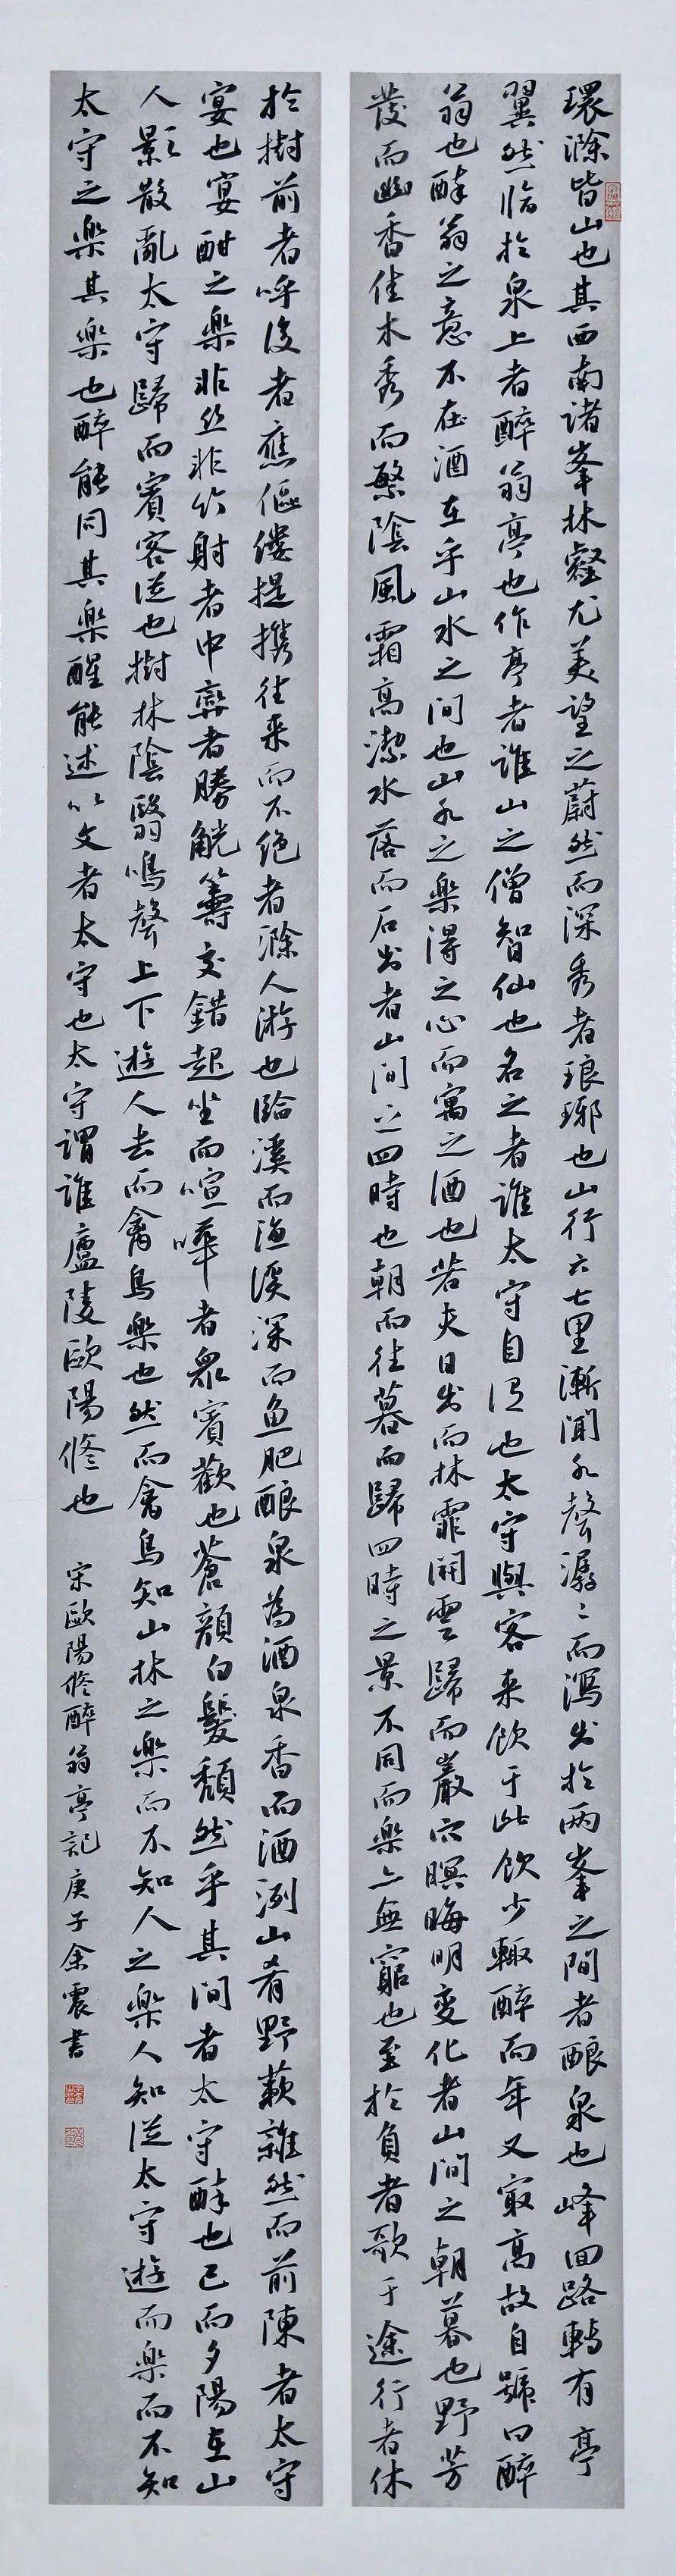 環滁皆山也其西南諸峯林壑尤美望之蔚然而深秀者琅琊也山行六七里漸聞水聲潺〻而瀉出於兩峯之間者釀泉也峰回路轉有亭
翼然臨於泉上者醉翁亭也作亭者誰山之僧智仙也名之者誰太守自謂也太守與客來飲于此飲少輒醉而年又最高故自號曰醉
翁也醉翁之意不在酒在乎山水之間也山水之樂得之心而寓之酒也若夫日出而林霏開雲歸而巖穴暝晦明變化者山間之朝暮也野芳
發而幽香佳木秀而繁陰風霜高潔水落而石出者山間之四時也朝而往暮而歸四時之景不同而樂亦無窮也至於負者歌于途行者休
於樹前者呼後者應傴僂提攜往來而不絕者滁人游也臨溪而漁溪深而魚肥釀泉為酒泉香而酒洌山肴野蔌雜然而前陳者太守
宴也宴酣之樂非絲非竹射者中弈者勝觥籌交錯起坐而喧嘩者眾賓歡也蒼顏白髮頹然乎其間者太守醉也已而夕陽在山
人影散亂太守歸而賓客從也樹林陰翳鳴聲上下遊人去而禽鳥樂也然而禽鳥知山林之樂而不知人之樂人知從太守遊而樂而不知
太守之樂其樂也醉能同其樂醒能述以文者太守也太守謂誰廬陵歐陽修也
宋歐陽修醉翁亭記庚子余震書